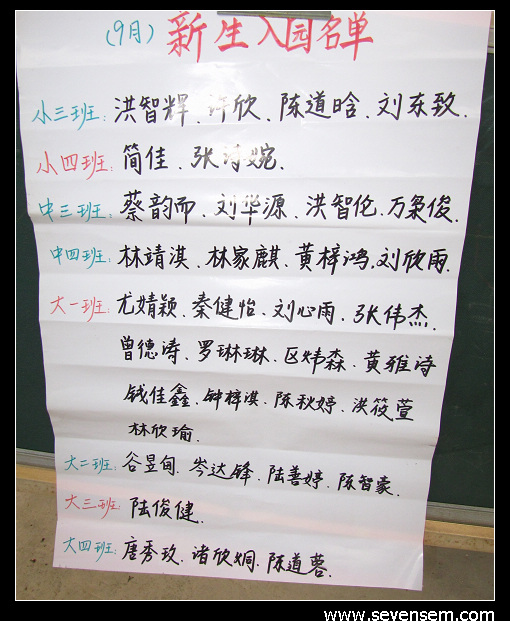 (9月) 新生入园名单
小三班: 洪智辉、许欣、陈道晗、刘东致.
小四班: 简佳、张诗婉.
中三班: 蔡韵而、刘华源、洪智伦、万枭俊.
中四班: 林靖淇、林家麒、黄梓鸿、刘欣雨.
大一班: 尤婧颖、秦健怡、刘心雨、张伟杰.
曾德涛、罗琳琳、区炜森、黄雅诗
钱佳鑫、钟梓淇、陈秋婷、洪筱萱
林欣瑜.
大二班: 谷昱甸、岑达锋、陆善婷、陈智豪.
大三班: 陆俊健.
大四班: 唐秀玫、诸欣炯、陈道蓉.
www.sevensem.com